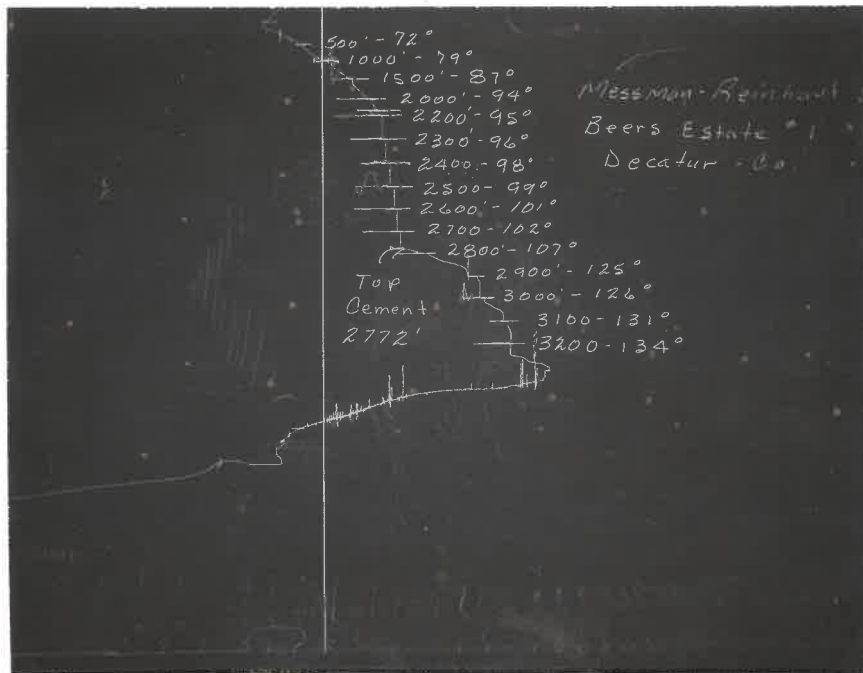 500' - 72°
1000' - 79°
1500' - 87°
2000' - 94°
2200' - 95°
2300' - 96°
2400 - 98°
2500 - 99°
2600' - 101°
2700 - 102°
2800' - 107°
2900' - 125°
3000' - 126°
3100 - 131°
3200 - 134°
Top
Cement
2772'
Messman - Reinhardt
Beers Estate #1
Decatur - Co.